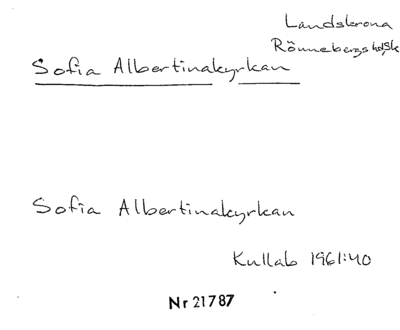 Landskrona
Rönnebergs hd, Sk
Sofia Albertinakyrkan
Sofia Albertinakyrkan
Kullab 1961:40
Nr 21787